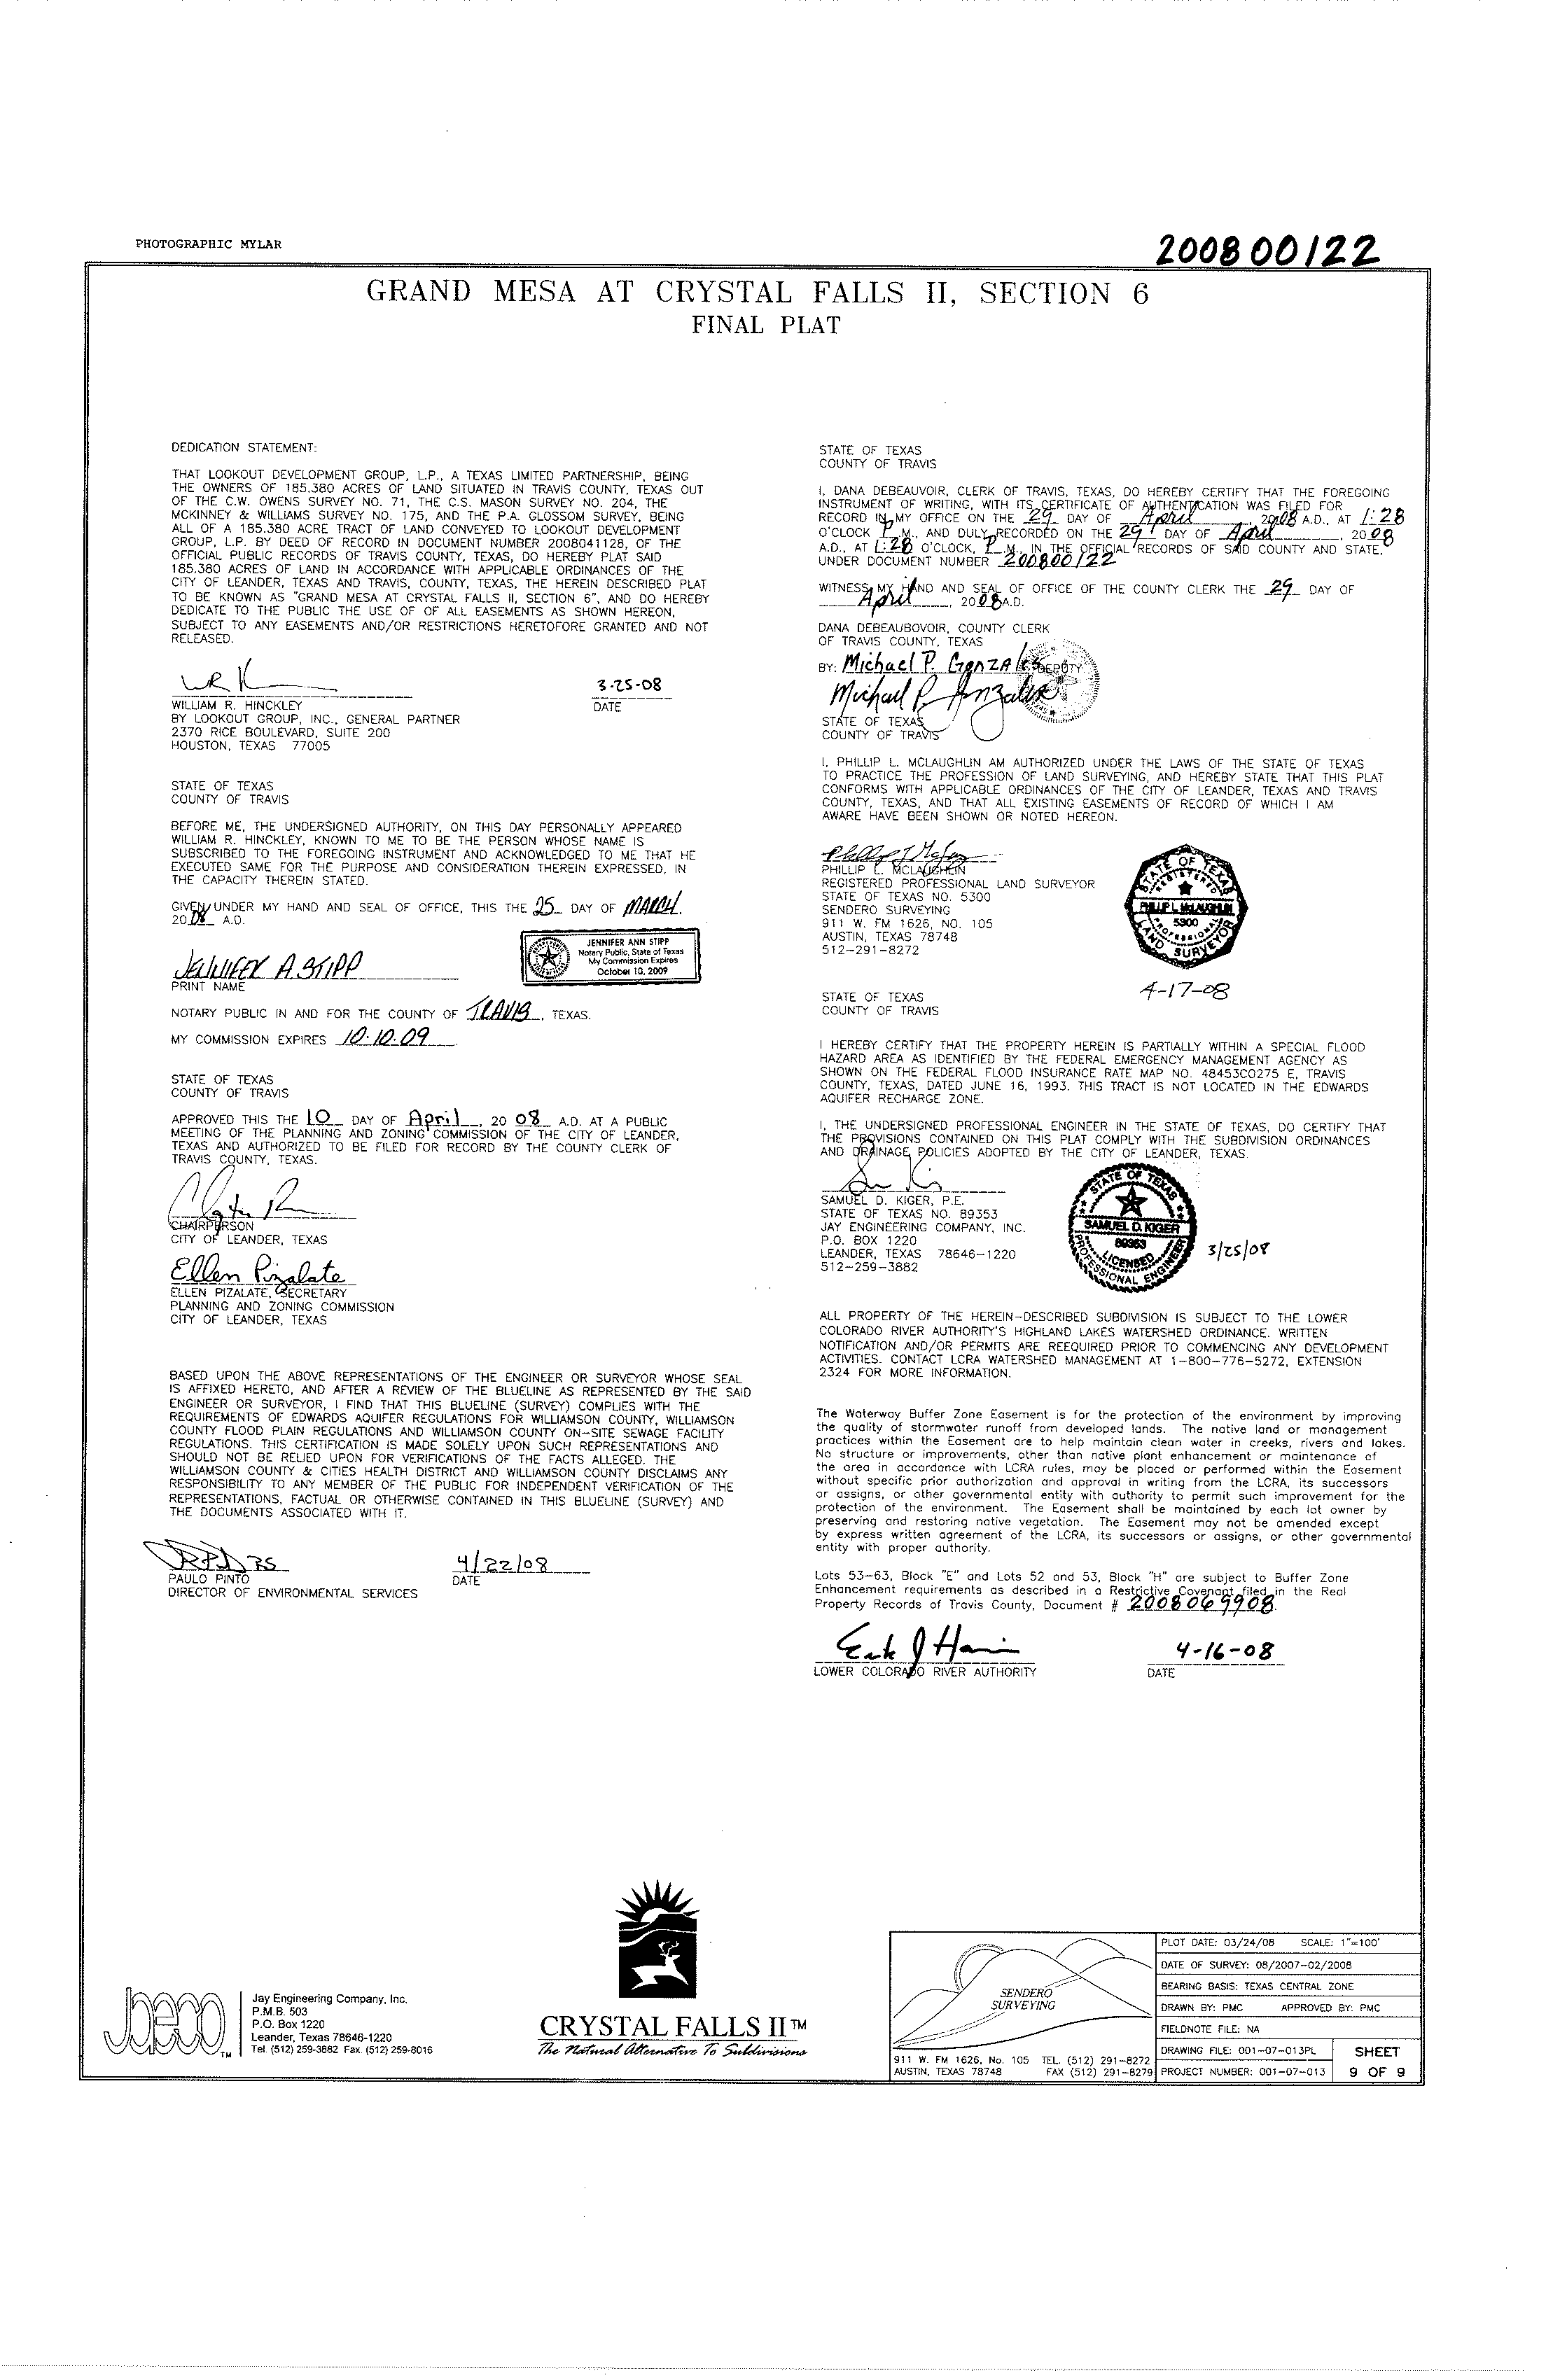 PHOTOGRAPHIC MYLAR
200800122
GRAND MESA AT CRYSTAL FALLS II, SECTION 6
FINAL PLAT
DEDICATION STATEMENT:
THAT LOOKOUT DEVELOPMENT GROUP, L.P., A TEXAS LIMITED PARTNERSHIP, BEING
THE OWNERS OF 185.380 ACRES OF LAND SITUATED IN TRAVIS COUNTY, TEXAS OUT
OF THE C.W. OWENS SURVEY NO. 71, THE C.S. MASON SURVEY NO. 204, THE
MCKINNEY & WILLIAMS SURVEY NO. 175, AND THE P.A. GLOSSOM SURVEY, BEING
ALL OF A 185.380 ACRE TRACT OF LAND CONVEYED TO LOOKOUT DEVELOPMENT
GROUP, L.P. BY DEED OF RECORD IN DOCUMENT NUMBER 2008041128, OF THE
OFFICIAL PUBLIC RECORDS OF TRAVIS COUNTY, TEXAS, DO HEREBY PLAT SAID
185.380 ACRES OF LAND IN ACCORDANCE WITH APPLICABLE ORDINANCES OF THE
CITY OF LEANDER, TEXAS AND TRAVIS, COUNTY, TEXAS, THE HEREIN DESCRIBED PLAT
TO BE KNOWN AS "GRAND MESA AT CRYSTAL FALLS II, SECTION 6", AND DO HEREBY
DEDICATE TO THE PUBLIC THE USE OF OF ALL EASEMENTS AS SHOWN HEREON,
SUBJECT TO ANY EASEMENTS AND/OR RESTRICTIONS HERETOFORE GRANTED AND NOT
RELEASED.
3-25-08
WILLIAM R. HINCKLEY DATE
BY LOOKOUT GROUP, INC., GENERAL PARTNER
2370 RICE BOULEVARD, SUITE 200
HOUSTON, TEXAS 77005
STATE OF TEXAS
COUNTY OF TRAVIS
BEFORE ME, THE UNDERSIGNED AUTHORITY, ON THIS DAY PERSONALLY APPEARED
WILLIAM R. HINCKLEY, KNOWN TO ME TO BE THE PERSON WHOSE NAME IS
SUBSCRIBED TO THE FOREGOING INSTRUMENT AND ACKNOWLEDGED TO ME THAT HE
EXECUTED SAME FOR THE PURPOSE AND CONSIDERATION THEREIN EXPRESSED, IN
THE CAPACITY THEREIN STATED.
GIVEN UNDER MY HAND AND SEAL OF OFFICE, THIS THE 25 DAY OF MARCH,
2008 A.D.
JENNIFER ANN STIPP
Notary Public, State of Texas
My Commission Expires
October 10, 2009
JENNIFER A STIPP
PRINT NAME
NOTARY PUBLIC IN AND FOR THE COUNTY OF TRAVIS, TEXAS.
MY COMMISSION EXPIRES 10.10.09
STATE OF TEXAS
COUNTY OF TRAVIS
APPROVED THIS THE 10 DAY OF April, 20 08 A.D. AT A PUBLIC
MEETING OF THE PLANNING AND ZONING COMMISSION OF THE CITY OF LEANDER,
TEXAS AND AUTHORIZED TO BE FILED FOR RECORD BY THE COUNTY CLERK OF
TRAVIS COUNTY, TEXAS.
CHAIRPERSON
CITY OF LEANDER, TEXAS
Ellen Pizalate
ELLEN PIZALATE, SECRETARY
PLANNING AND ZONING COMMISSION
CITY OF LEANDER, TEXAS
BASED UPON THE ABOVE REPRESENTATIONS OF THE ENGINEER OR SURVEYOR WHOSE SEAL
IS AFFIXED HERETO, AND AFTER A REVIEW OF THE BLUELINE AS REPRESENTED BY THE SAID
ENGINEER OR SURVEYOR, I FIND THAT THIS BLUELINE (SURVEY) COMPLIES WITH THE
REQUIREMENTS OF EDWARDS AQUIFER REGULATIONS FOR WILLIAMSON COUNTY, WILLIAMSON
COUNTY FLOOD PLAIN REGULATIONS AND WILLIAMSON COUNTY ON-SITE SEWAGE FACILITY
REGULATIONS. THIS CERTIFICATION IS MADE SOLELY UPON SUCH REPRESENTATIONS AND
SHOULD NOT BE RELIED UPON FOR VERIFICATIONS OF THE FACTS ALLEGED. THE
WILLIAMSON COUNTY & CITIES HEALTH DISTRICT AND WILLIAMSON COUNTY DISCLAIMS ANY
RESPONSIBILITY TO ANY MEMBER OF THE PUBLIC FOR INDEPENDENT VERIFICATION OF THE
REPRESENTATIONS, FACTUAL OR OTHERWISE CONTAINED IN THIS BLUELINE (SURVEY) AND
THE DOCUMENTS ASSOCIATED WITH IT.
4/22/08
PAULO PINTO DATE
DIRECTOR OF ENVIRONMENTAL SERVICES
STATE OF TEXAS
COUNTY OF TRAVIS
I, DANA DEBEAUVOIR, CLERK OF TRAVIS, TEXAS, DO HEREBY CERTIFY THAT THE FOREGOING
INSTRUMENT OF WRITING, WITH ITS CERTIFICATE OF AUTHENTICATION WAS FILED FOR
RECORD IN MY OFFICE ON THE 29 DAY OF April, 2008 A.D., AT 1:28
O'CLOCK P.M., AND DULY RECORDED ON THE 29 DAY OF April, 20 08
A.D., AT 1:28 O'CLOCK, P.M., IN THE OFFICIAL RECORDS OF SAID COUNTY AND STATE,
UNDER DOCUMENT NUMBER 200800122
WITNESS MY HAND AND SEAL OF OFFICE OF THE COUNTY CLERK THE 29 DAY OF
April, 2008 A.D.
DANA DEBEAUBOVOIR, COUNTY CLERK
OF TRAVIS COUNTY, TEXAS
BY: Michael P. GONZALES DEPUTY
Michael P. Gonzales
STATE OF TEXAS
COUNTY OF TRAVIS
I, PHILLIP L. MCLAUGHLIN AM AUTHORIZED UNDER THE LAWS OF THE STATE OF TEXAS
TO PRACTICE THE PROFESSION OF LAND SURVEYING, AND HEREBY STATE THAT THIS PLAT
CONFORMS WITH APPLICABLE ORDINANCES OF THE CITY OF LEANDER, TEXAS AND TRAVIS
COUNTY, TEXAS, AND THAT ALL EXISTING EASEMENTS OF RECORD OF WHICH I AM
AWARE HAVE BEEN SHOWN OR NOTED HEREON.
PHILLIP L. MCLAUGHLIN
REGISTERED PROFESSIONAL LAND SURVEYOR
STATE OF TEXAS NO. 5300
SENDERO SURVEYING
911 W. FM 1626, NO. 105
AUSTIN, TEXAS 78748
512-291-8272
STATE OF TEXAS
REGISTERED
PHILLIP L. MCLAUGHLIN
5300
PROFESSIONAL
LAND SURVEYOR
4-17-08
STATE OF TEXAS
COUNTY OF TRAVIS
I HEREBY CERTIFY THAT THE PROPERTY HEREIN IS PARTIALLY WITHIN A SPECIAL FLOOD
HAZARD AREA AS IDENTIFIED BY THE FEDERAL EMERGENCY MANAGEMENT AGENCY AS
SHOWN ON THE FEDERAL FLOOD INSURANCE RATE MAP NO. 48453C0275 E, TRAVIS
COUNTY, TEXAS, DATED JUNE 16, 1993. THIS TRACT IS NOT LOCATED IN THE EDWARDS
AQUIFER RECHARGE ZONE.
I, THE UNDERSIGNED PROFESSIONAL ENGINEER IN THE STATE OF TEXAS, DO CERTIFY THAT
THE PROVISIONS CONTAINED ON THIS PLAT COMPLY WITH THE SUBDIVISION ORDINANCES
AND DRAINAGE POLICIES ADOPTED BY THE CITY OF LEANDER, TEXAS.
SAMUEL D. KIGER, P.E.
STATE OF TEXAS NO. 89353
JAY ENGINEERING COMPANY, INC.
P.O. BOX 1220
LEANDER, TEXAS 78646-1220
512-259-3882
STATE OF TEXAS
SAMUEL D. KIGER
89353
LICENSED
PROFESSIONAL ENGINEER
3/25/08
ALL PROPERTY OF THE HEREIN-DESCRIBED SUBDIVISION IS SUBJECT TO THE LOWER
COLORADO RIVER AUTHORITY'S HIGHLAND LAKES WATERSHED ORDINANCE. WRITTEN
NOTIFICATION AND/OR PERMITS ARE REEQUIRED PRIOR TO COMMENCING ANY DEVELOPMENT
ACTIVITIES. CONTACT LCRA WATERSHED MANAGEMENT AT 1-800-776-5272, EXTENSION
2324 FOR MORE INFORMATION.
The Waterway Buffer Zone Easement is for the protection of the environment by improving
the quality of stormwater runoff from developed lands. The native land or management
practices within the Easement are to help maintain clean water in creeks, rivers and lakes.
No structure or improvements, other than native plant enhancement or maintenance of
the area in accordance with LCRA rules, may be placed or performed within the Easement
without specific prior authorization and approval in writing from the LCRA, its successors
or assigns, or other governmental entity with authority to permit such improvement for the
protection of the environment. The Easement shall be maintained by each lot owner by
preserving and restoring native vegetation. The Easement may not be amended except
by express written agreement of the LCRA, its successors or assigns, or other governmental
entity with proper authority.
Lots 53-63, Block "E" and Lots 52 and 53, Block "H" are subject to Buffer Zone
Enhancement requirements as described in a Restrictive Covenant filed in the Real
Property Records of Travis County, Document # 2008069908.
4-16-08
LOWER COLORADO RIVER AUTHORITY DATE
jaeco TM
Jay Engineering Company, Inc.
P.M.B. 503
P.O. Box 1220
Leander, Texas 78646-1220
Tel. (512) 259-3882 Fax. (512) 259-8016
CRYSTAL FALLS II TM
The Natural Alternative To Subdivisions
SENDERO
SURVEYING
911 W. FM 1626, No. 105 TEL. (512) 291-8272
AUSTIN, TEXAS 78748 FAX (512) 291-8279
PLOT DATE: 03/24/08 SCALE: 1"=100'
DATE OF SURVEY: 08/2007-02/2008
BEARING BASIS: TEXAS CENTRAL ZONE
DRAWN BY: PMC APPROVED BY: PMC
FIELDNOTE FILE: NA
DRAWING FILE: 001-07-013PL
PROJECT NUMBER: 001-07-013
SHEET
9 OF 9